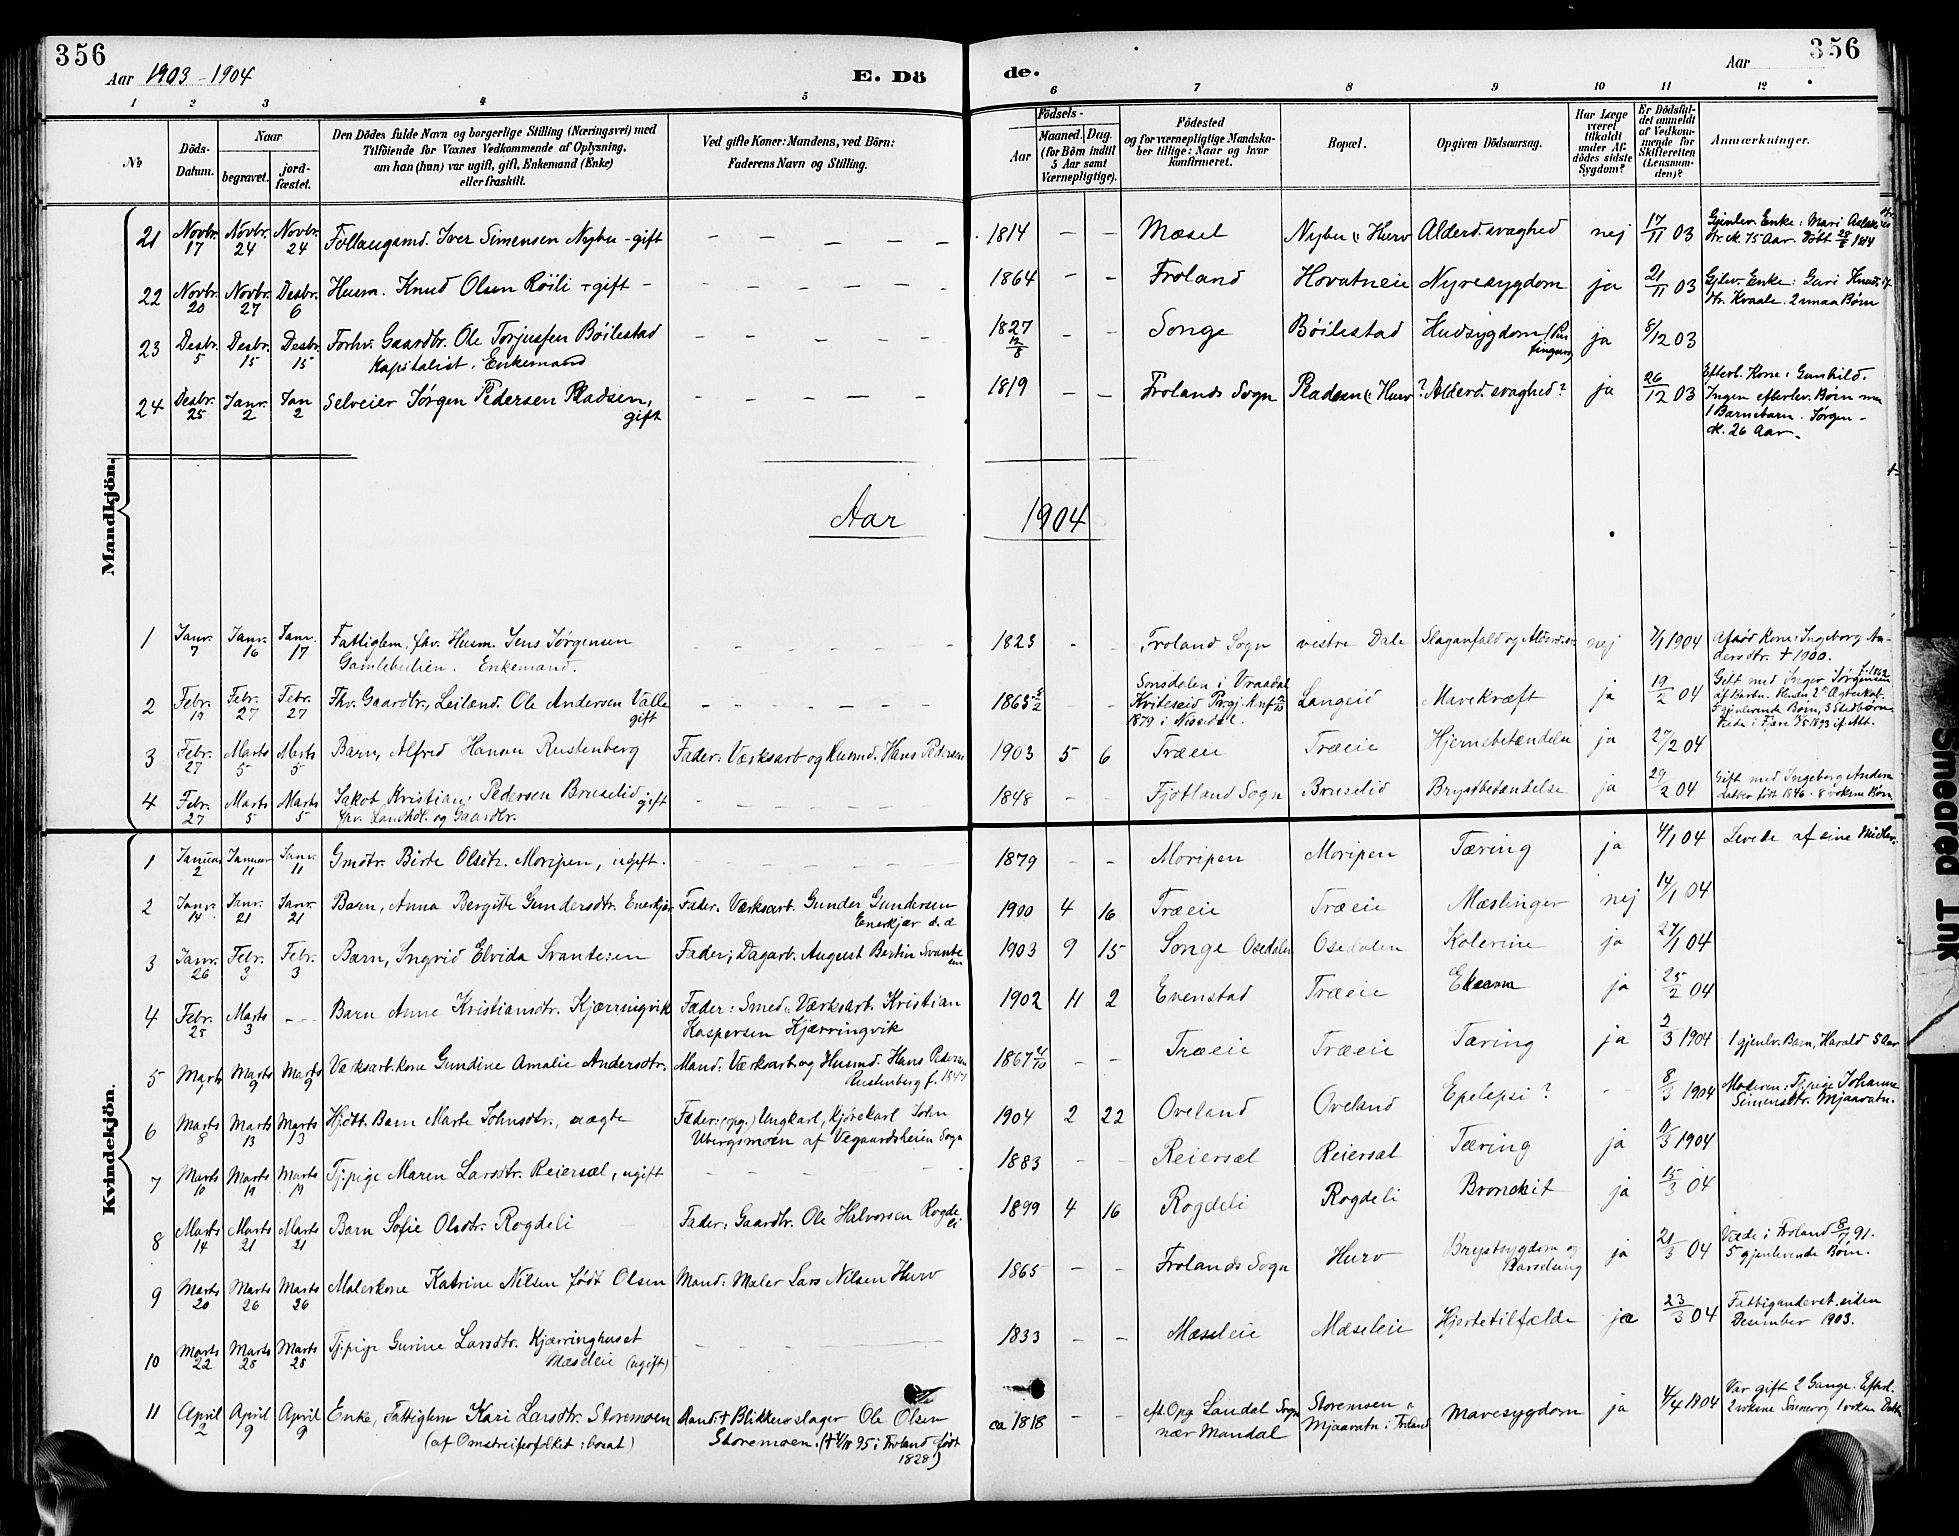 356
Aar 1903-1904
E. Dö
de.
Aar
356
1 2 3 4 5 6 7 8 9 10 11 12
No
Döds-Datum.
Naar
begravet.
jord-fæstet.
Den Dödes fulde Navn og borgerlige Stilling (Næringsvei) med
Tilföiende for Voxnes Vedkommende af Oplysning,
om han (hun) var ugift, gift, Enkemand (Enke)
eller fraskilt.
Ved gifte Koner: Mandens, ved Börn:
Faderens Navn og Stilling.
Födsels-
Aar
Maaned. Dag.
(for Börn indtil
5 Aar samt
Værnepligtige).
Födested
og for værnepligtige Mandska-
ber tillige: Naar og hvor
konfirmeret.
Bopæl.
Opgiven Dödsaarsag.
Har Læge
været
tilkaldt
under Af-
dödes sidste
Sygdom?
Er Dödsfal-
det anmeldt
af Vedkom-
mende for
Skifteretten
(Lensman-
den)?
Anmærkninger.
Mandkjön.
21 Novbr. 17 Novbr. 24 Novbr. 24 Follaugsmd. Iver Simensen Nybu - gift - - - - - 1814 - - Mæsel Nybu i Hurv Alderd.svaghed nej 17/11 03 Gjenlev. Enke: Mari Aslaks
dtr. M. 75 Aar. Født 25/8 1814
22 Novbr. 20 Novbr. 27 Desbr. 6 Husm. Knud Olsen Röili - gift - - - - - - 1864 - - Froland Hovatneie Nyresygdom ja 21/11 03 Gjlev. Enke: Guri Knuds
dtr. Kvaale. 2 smaa Børn
23 Desbr. 5 Desbr. 15 Desbr. 15 Forhv. Gaardbr. Ole Torjussen Böilestad
Kapitalist. Enkemand - - - - - 1827 12/8 - - Songe Böilestad Hudsygdom ja 8/12 03
24 Desbr. 25 Janr. 2 Jan 2 Selveier Jörgen Pedersen Pladsen,
gift - - - - - 1819 - - Frolands Sogn Pladsen i Hurv ? Alderd.svaghed? ja 26/12 03 Efterl. Kone: Gunhild.
Ingen efterlev. Børn men
1 Barnebarn. Jørgen
M. 26 Aar.
Aar 1904
1 Janr. 7 Janr. 16 Janr. 17 Fattiglem, fhv. Husm. Jens Jørgensen
Gamlebulien. Enkemand. - - - - - 1823 - - Froland Sogn vestre Dale Slaganfald og nej 7/1 1904 Afdød Kone: Ingeborg An-
dersdtr. † 1900.
2 Febr. 19 Febr. 27 Febr. 27 Fhv. Gaardbr., Leilænd. Ole Andersen Valle
gift - - - - - Vraadal
Kviteseid Prgj.
1879 i Nissedal. Langeid Mavekræft ja 19/2 04 Gift med Inger Jörgensen
5 gjenlevende Børn, 3 Stedbørn
3 Febr. 27 Marts 5 Marts 5 Barn, Alfred Hansen Rustenberg Fader: Værksarb og Husmd. Hans Pedersen 1903 5 6 Træeie Træeie Hjernebetændelse ja 27/2 04
4 Febr. 27 Marts 5 Marts 5 Jakob Kristian Pedersen Bruselid gift
fhv. Landhdl. og Gaardbr. - - - - - 1848 - - Fjotland Sogn Bruselid Brystbetændelse ja 29/2 04 Gift med Ingeborg Anders
datter født 1846. 8 voksne Børn
Kvindekjön.
1 Januar 2 Januar 11 Janr. 11 Gmdtr. Birte Olsdtr. Moripen, ugift. - - - - 1879 - - Moripen Moripen Tæring ja 4/1 04 Levede af sine Midler.
2 Janr. 14 Janr. 21 Janr. 21 Barn, Anna Bergitte Gundersdtr. Enerkjær Fader: Værksarb. Gunder Gundersen
Enerkjær s.a 1900 4 16 Træeie Træeie Mæslinger nej 14/1 04
3 Janr. 26 Febr. 3 Febr. 3 Barn, Ingrid Elvida Svantesen Fader; Dagarb. August Bertin Svante
sen 1903 9 15 Songe Osedalen Osedalen Kolerine ja 27/1 04
4 Febr. 25 Marts 3 - - - Barn Anne Kristiansdtr. Kjærringvik Fader: Smed, Værksarb. Kristian
Kaspersen Kjærringvik 1902 11 2 Evenstad Træeie ja 25/2 04
5 Marts Marts 9 Marts 9 Værksarb.kone Gundine Amalie Andersdtr. Mand: Værksarb og Husmd. Hans Pedersen
Rustenberg f. 1847 1867 - - Træeie Træeie Tæring ja 2/3 1904 1 gjenlv. Barn, Harald 5 Aar
6 Marts 8 Marts 13 Marts 13 Hjdbt. Barn Marte Johnsdtr., uægte Fader: (opg.) Ungkarl, Kjørekarl John
Ubergsmoen af Vegaardsheien Sogn 1904 2 22 Oveland Oveland Epelepsi? - - 8/3 1904 Moderen: Tj.pige Johanne
Simensdtr. Mjaavatn.
7 Marts 10 Marts 19 Marts 19 Tj.pige Maren Larsdtr. Reiersøl, ugift - - - - 1883 - - Reiersøl Reiersøl Tæring ja 11/3 1904
8 Marts 14 Marts 21 Marts 21 Barn Sofie Olsdtr. Rogdeli Fader: Gaardbr. Ole Halvorsen Rogde
li 1899 4 16 Rogdeli Rogdeli Bronckit ja 15/3 04
9 Marts 20 Marts 26 Marts 26 Malerkone Katrine Nilsen født Olsen Mand: Maler Lars Nilsen Hurv 1865 - - Frolands Sogn Hurv Brystsygdom og
Barselseng ja 21/3 04 Viede i Froland 8/7 91.
5 gjenlevende Børn.
10 Marts 22 Marts 28 Marts 28 Tj.pige Gurine Larsdtr. Kjærringhuset
Mæseleie (ugift) - - - - 1833 - - Mæseleie Mæseleie Hjertetilfælde ja 23/3 04 Fattigunderst. siden
Desember 1903.
11 April 2 April 9 April 9 Enke, Fattiglem Kari Larsdtr. Storemoen
(af Omstreiferfolket: bosat) Mand: † Blikkenslager Ole Olsen
Storemoen. 95 i Froland født
1828) ca 1818 - - eft. Opg. Landal Sogn
nær Mandal Storemoen i
Mjaavatn i Froland Mavesygdom ja 4/4 1904 Var gift 2 Gange. Efterl.
2 voksne Sønner og 1 voksen Datt
Smeared Ink